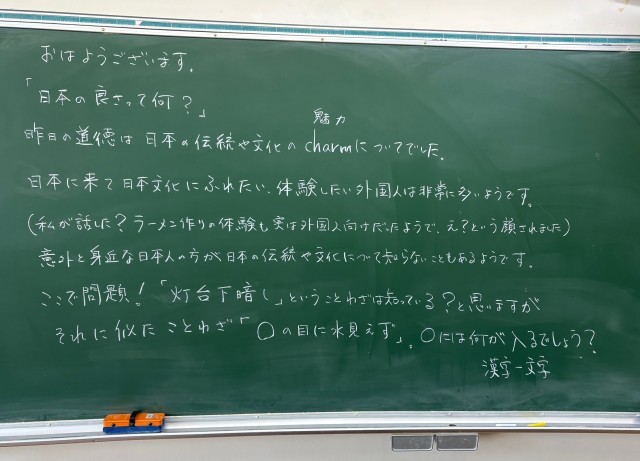 おはようございます。
「日本の良さって何？」
魅力
昨日の道徳は日本の伝統や文化のcharmについてでした。
日本に来て日本文化にふれたい、体験したい外国人は非常に多いようです。
(私が話した？ラーメン作りの体験も実は外国人向けだったようで、え？という顔されました)
意外と身近な日本人の方が日本の伝統や文化について知らないこともあるようです。
ここで問題！「灯台下暗し」ということわざは知っている？と思いますが
それに似たことわざ「○の目に水見えず」。○には何が入るでしょう？
漢字一文字